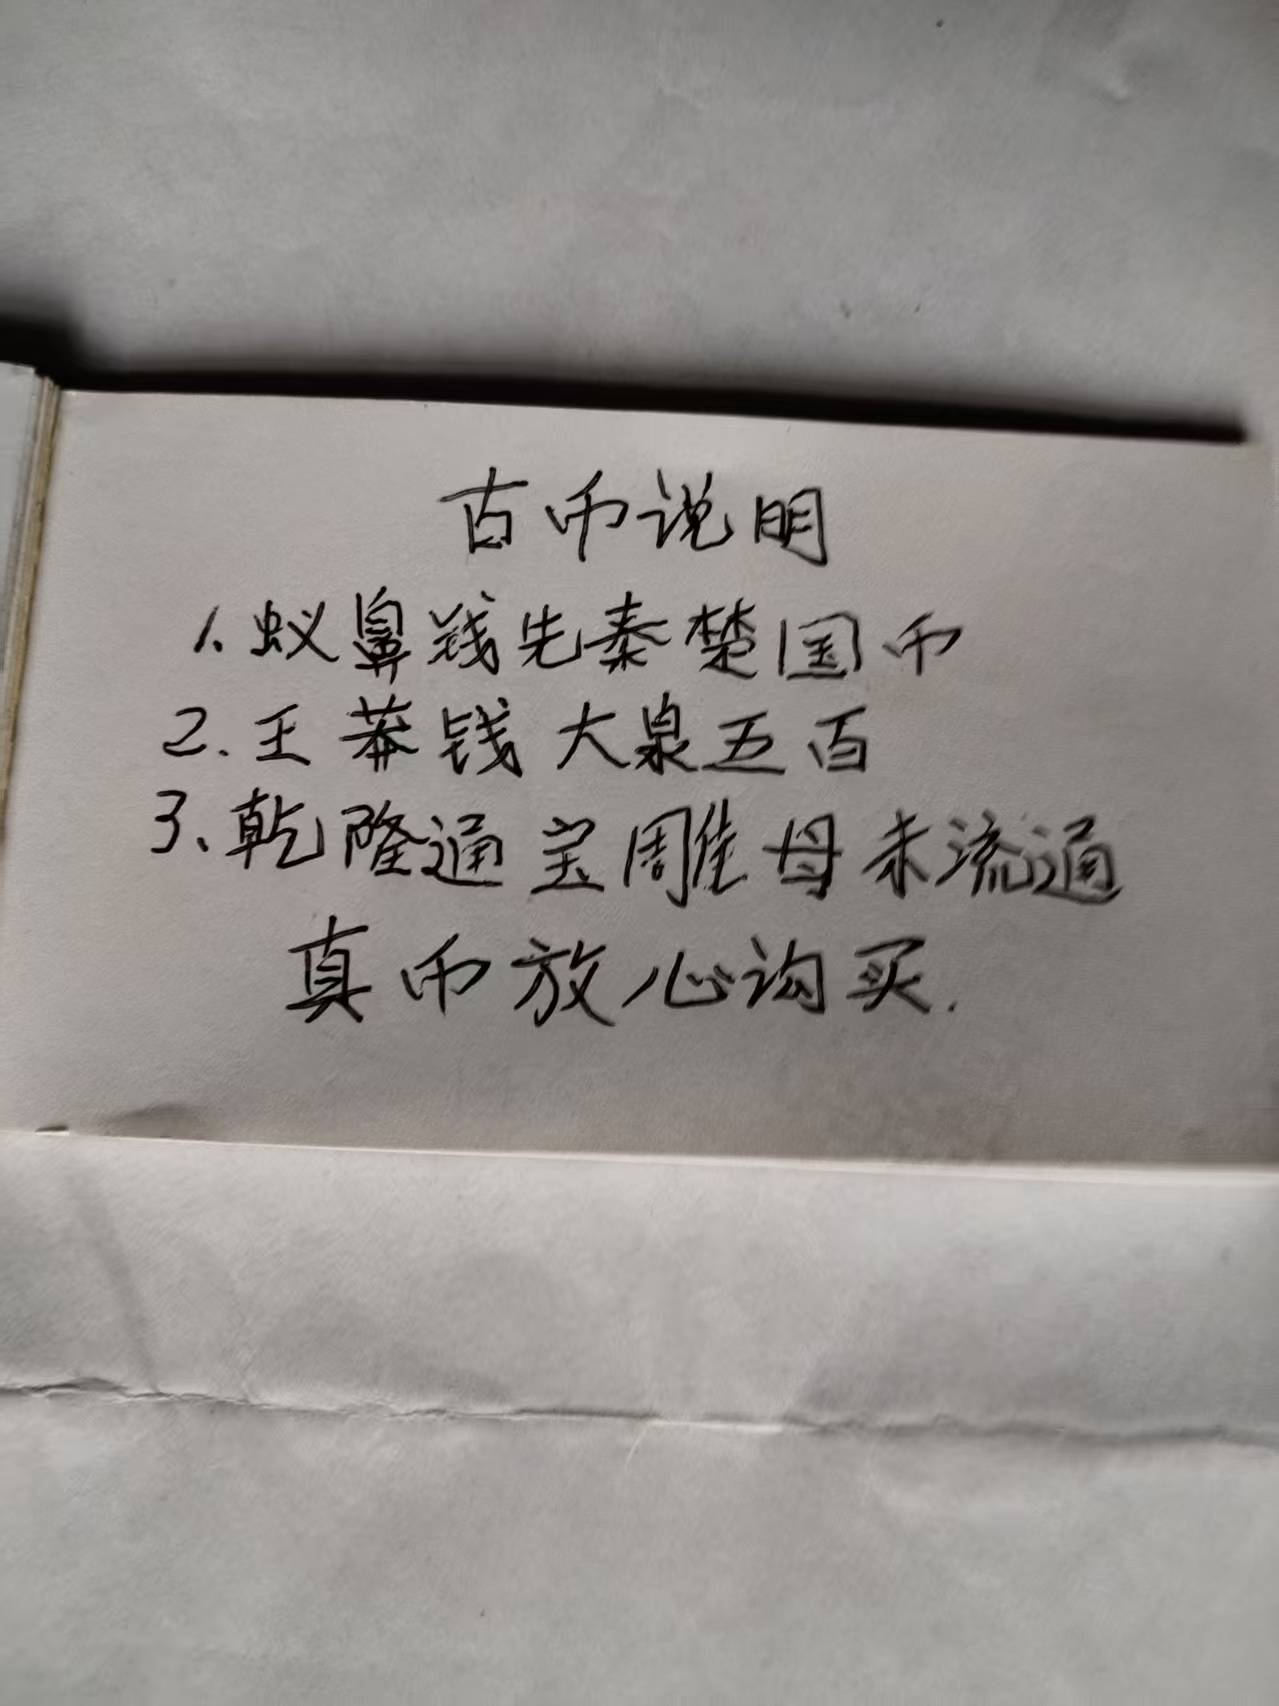 古币说明
1.蚁鼻钱先秦楚国币
2.王莽钱大泉五百
3.乾隆通宝雕母未流通
真币放心沟买.